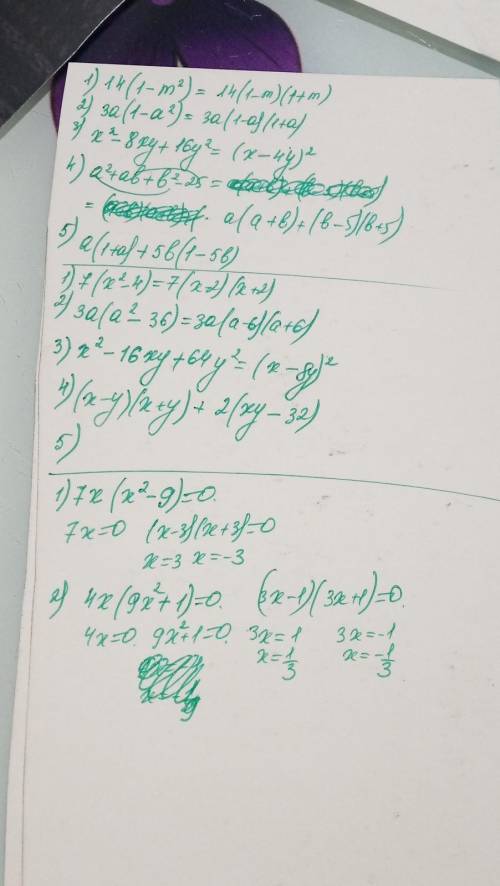 1) 14(1-m²) = 14(1-m)(1+m)
2) 3a(1-a²) = 3a(1-a)(1+a)
3) x²-8xy+16y² = (x-4y)²
4) a²+ab+b²-25 =
= a(a+b)+(b-5)(b+5)
5) a(1+a)+5b(1-5b)
1) 7(x²-4)=7(x-2)(x+2)
2) 3a(a²-36)=3a(a-6)(a+6)
3) x²-16xy+64y²=(x-8y)²
4) (x-y)(x+y)+2(xy-32)
5)
1) 7x(x²-9)=0.
7x=0 (x-3)(x+3)=0
x=3 x=-3
2) 4x(9x²+1)=0. (3x-1)(3x+1)=0.
4x=0. 9x²+1=0. 3x=1 3x=-1
x=1/3 x=-1/3